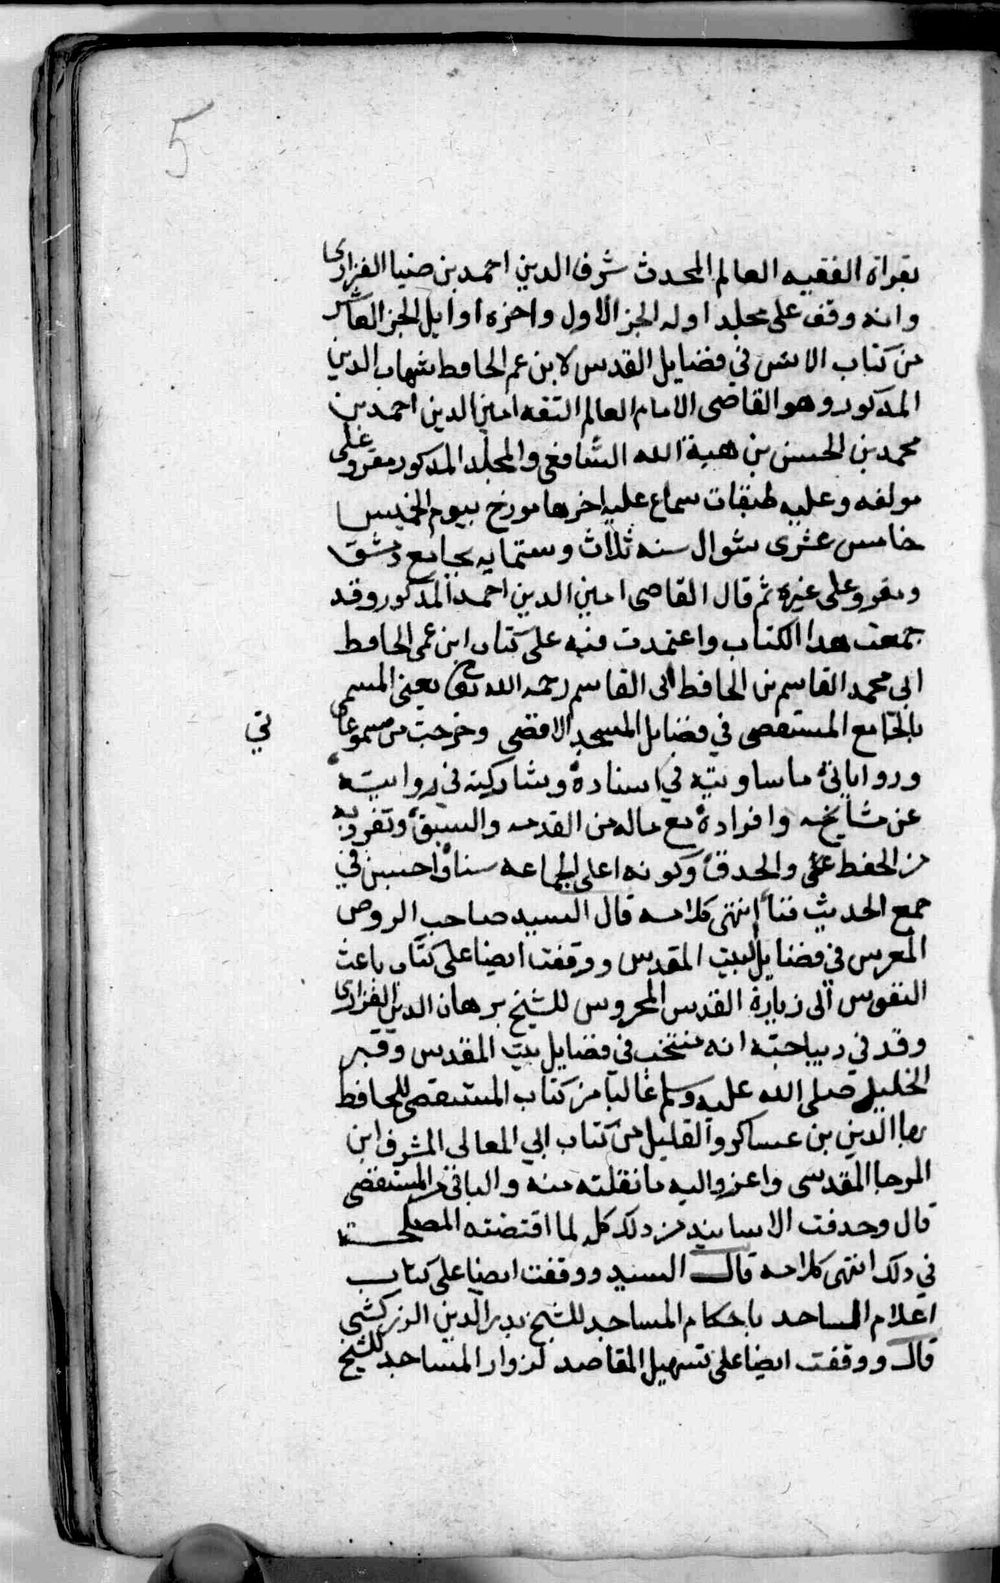 5
بقراة الفقيه العالم المحدث شرف الدين احمد بن ضيا الفزارى
وانه وقف على مجلد اوله الجز الاول واخره اوايل الجز العاشر
من كتاب الانس في فضايل القدس لابن عم الحافط شهاب الدين
المدكور وهو القاضى الامام العالم الثقه امين الدين احمد بن
محمد بن الحسن بن هبة الله الشافعى والمجلد المدكور مقرو على
مولفه وعليه طبقات سماع عليه اخرها مورخ بيوم الخميس
خامس عشرى شوال سنه ثلاث وستمايه بجامع دمشق
ومقرو على غيره ثم قال القاضى امين الدين احمد المدكور وقد
جمعت هدا الكتاب واعتمدت فيه على كتاب ابن عمى الحافط
ابى محمد القاسم بن الحافظ ابى القاسم رحمه الله تعالى يعنى المسمى
بالجامع المستقصى في فضايل المسجد الاقصى وخرجت من مسموعاتي
ورواياتى ما ساويته في اسناده وشاركته في روايته
عن مشايخه وافراده مع ماله من القدمه والسبق وتفرده
من الحفط والحدق وكونه اعلى الجماعه سنا واحسن في
جمع الحديث فنا انتهى كلامه قال السيد صاحب الروض
المغرس في فضايل البيت المقدس ووقفت ايضا على كتاب باعث
النفوس الى زيارة القدس المحروس للشيخ برهان الدين الفزارى
وقد في ديباجته انه منتخب في فضايل بيت المقدس وقبر
الخليل صلى الله عليه وسلم غالبا من كتاب المستقصى للحافط
بها الدين بن عساكر والقليل من كتاب ابي المعالى المشرف ابن
المرجا المقدسى واعزو اليه ما نقلته منه والباقى من المستقصى
قال وحدفت الاسانيد من دلك كله لما اقتضته المصلحت
في دلك انتهى كلامه قال السيد ووقفت ايضا على كتاب
اعلام الساجد باحكام المساجد للشيخ بدر الدين الزركشى
قال ووقفت ايضا على تسهيل المقاصد لزوار المساجد للشيخ